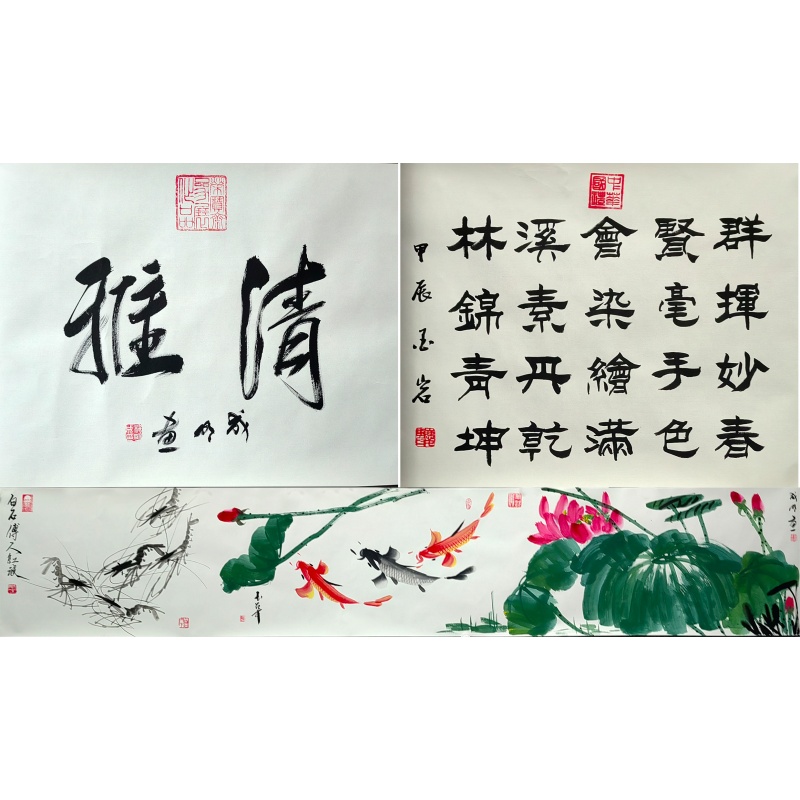 清雅
群賢會溪林
揮毫染素錦
妙手繪丹青
春色滿乾坤
甲辰墨岩
白石傳人